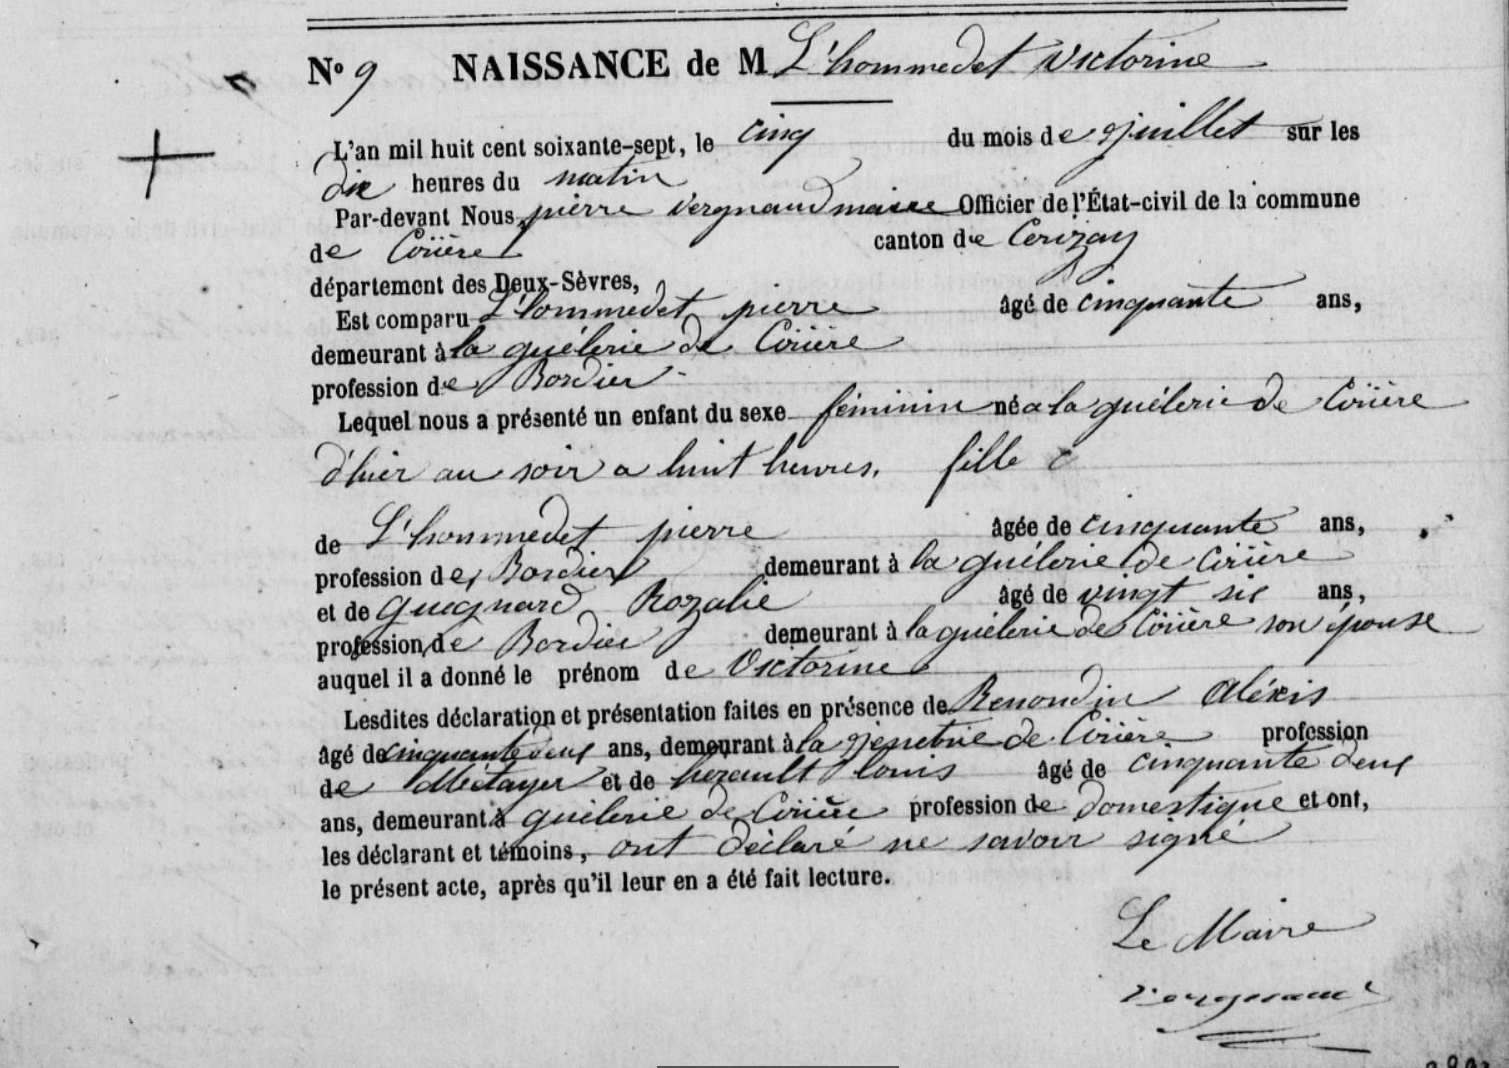 N° 9 NAISSANCE de M L'hommedet Victorine
L'an mil huit cent soixante-sept, le cinq du mois de juillet sur les
dix heures du matin
Par-devant Nous, pierre Vergnaud maire Officier de l'État-civil de la commune
de Cirière canton de Cerizay
département des Deux-Sèvres,
Est comparu L'hommedet pierre âgé de cinquante ans,
demeurant à la guélerie de Cirière
profession de Bordier
Lequel nous a présenté un enfant du sexe féminin né a la guélerie de Cirière
d'hier au soir a huit heures. fille
de L'hommedet pierre âgée de cinquante ans,
profession de Bordier demeurant à la guélerie de Cirière
et de guegnard Rozalie âgé de vingt six ans,
profession de Bordier demeurant à la guélerie de Cirière son épouse
auquel il a donné le prénom de Victorine
Lesdites déclaration et présentation faites en présence de Renondin Aléxis
âgé de cinquante deux ans, demeurant à la de Cirière profession
de Métayer et de herault louis âgé de cinquante deux
ans, demeurant à guélerie de Cirière profession de domestique et ont,
les déclarant et témoins, ont déclaré ne savoir signé
le présent acte, après qu'il leur en a été fait lecture.
Le Maire
Vergnaud